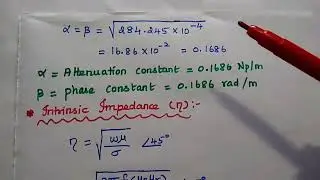 α = β = √284.245 × 10⁻⁴
= 16.86 × 10⁻² = 0.1686
α = Attenuation constant = 0.1686 Np/m
β = phase constant = 0.1686 rad/m
* Intrinsic Impedance (η) :-
η = √(ωμ/σ) ∠45°